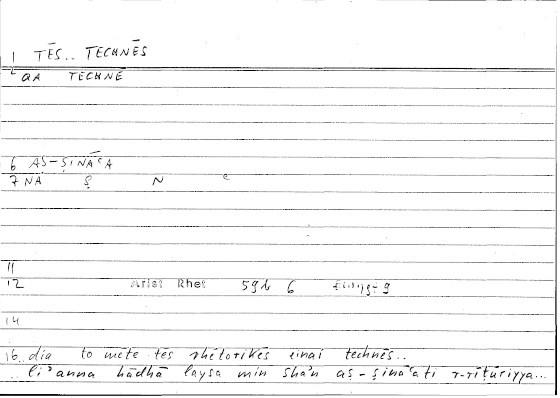 1 TĒS.. TECHNĒS
2 aA TECHNĒ
6 AṢ-ṢINĀʿA
7 NA Ṣ N ʿ
11
12 Arist Rhet 59b 6
14
16 dia to mēte tēs rhētorikēs einai technēs..
li'anna hādhā laysa min sha'n aṣ-ṣināʿati r-rīṭūriyya...